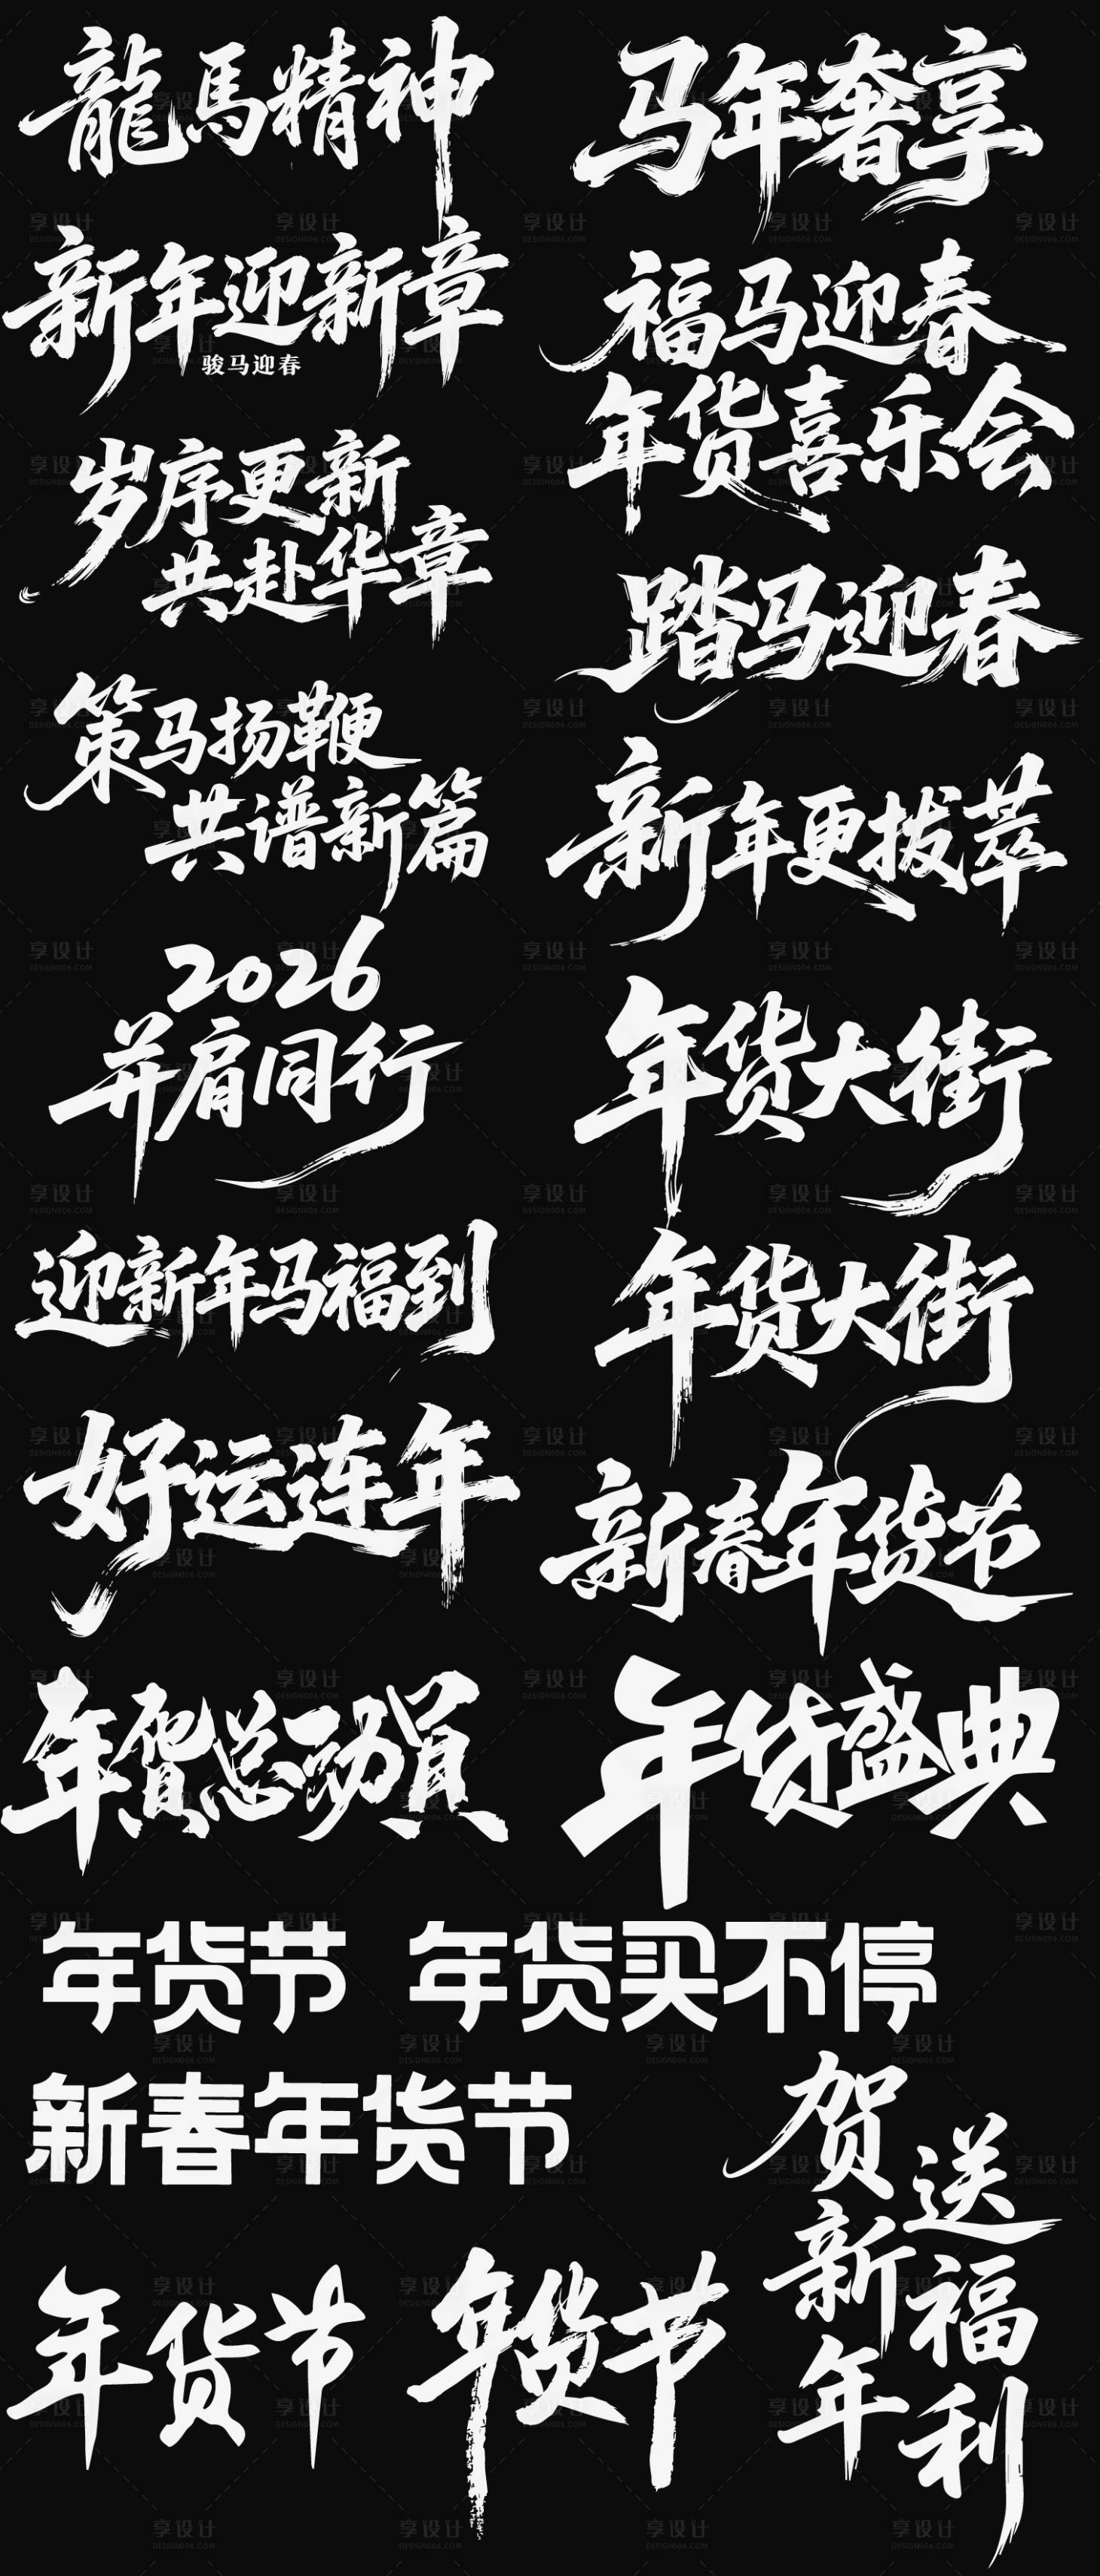 龍馬精神
马年奢享
新年迎新章
骏马迎春
福马迎春
年货喜乐会
岁序更新
共赴华章
踏马迎春
策马扬鞭
共谱新篇
新年更拔萃
2026
并肩同行
年货大街
迎新年马福到
年货大街
好运连年
新春年货节
年货总动員
年货盛典
年货节
年货买不停
新春年货节
贺新年
送福利
年货节
年货节
享设计
DESIGN006.COM